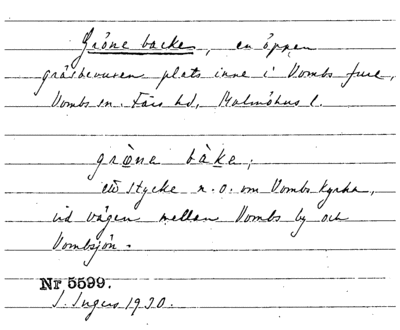 Gröne backe, en öppen
gräsbevuxen plats inne i Vombs fure,
Vombs sn. Färs hd, Malmöhus l.
grö̀ne bàke,
ett stycke n. o. om Vombs kyrka,
vid vägen mellan Vombs by och
Vombsjön.
Nr 5599.
I. Ingers 1930.